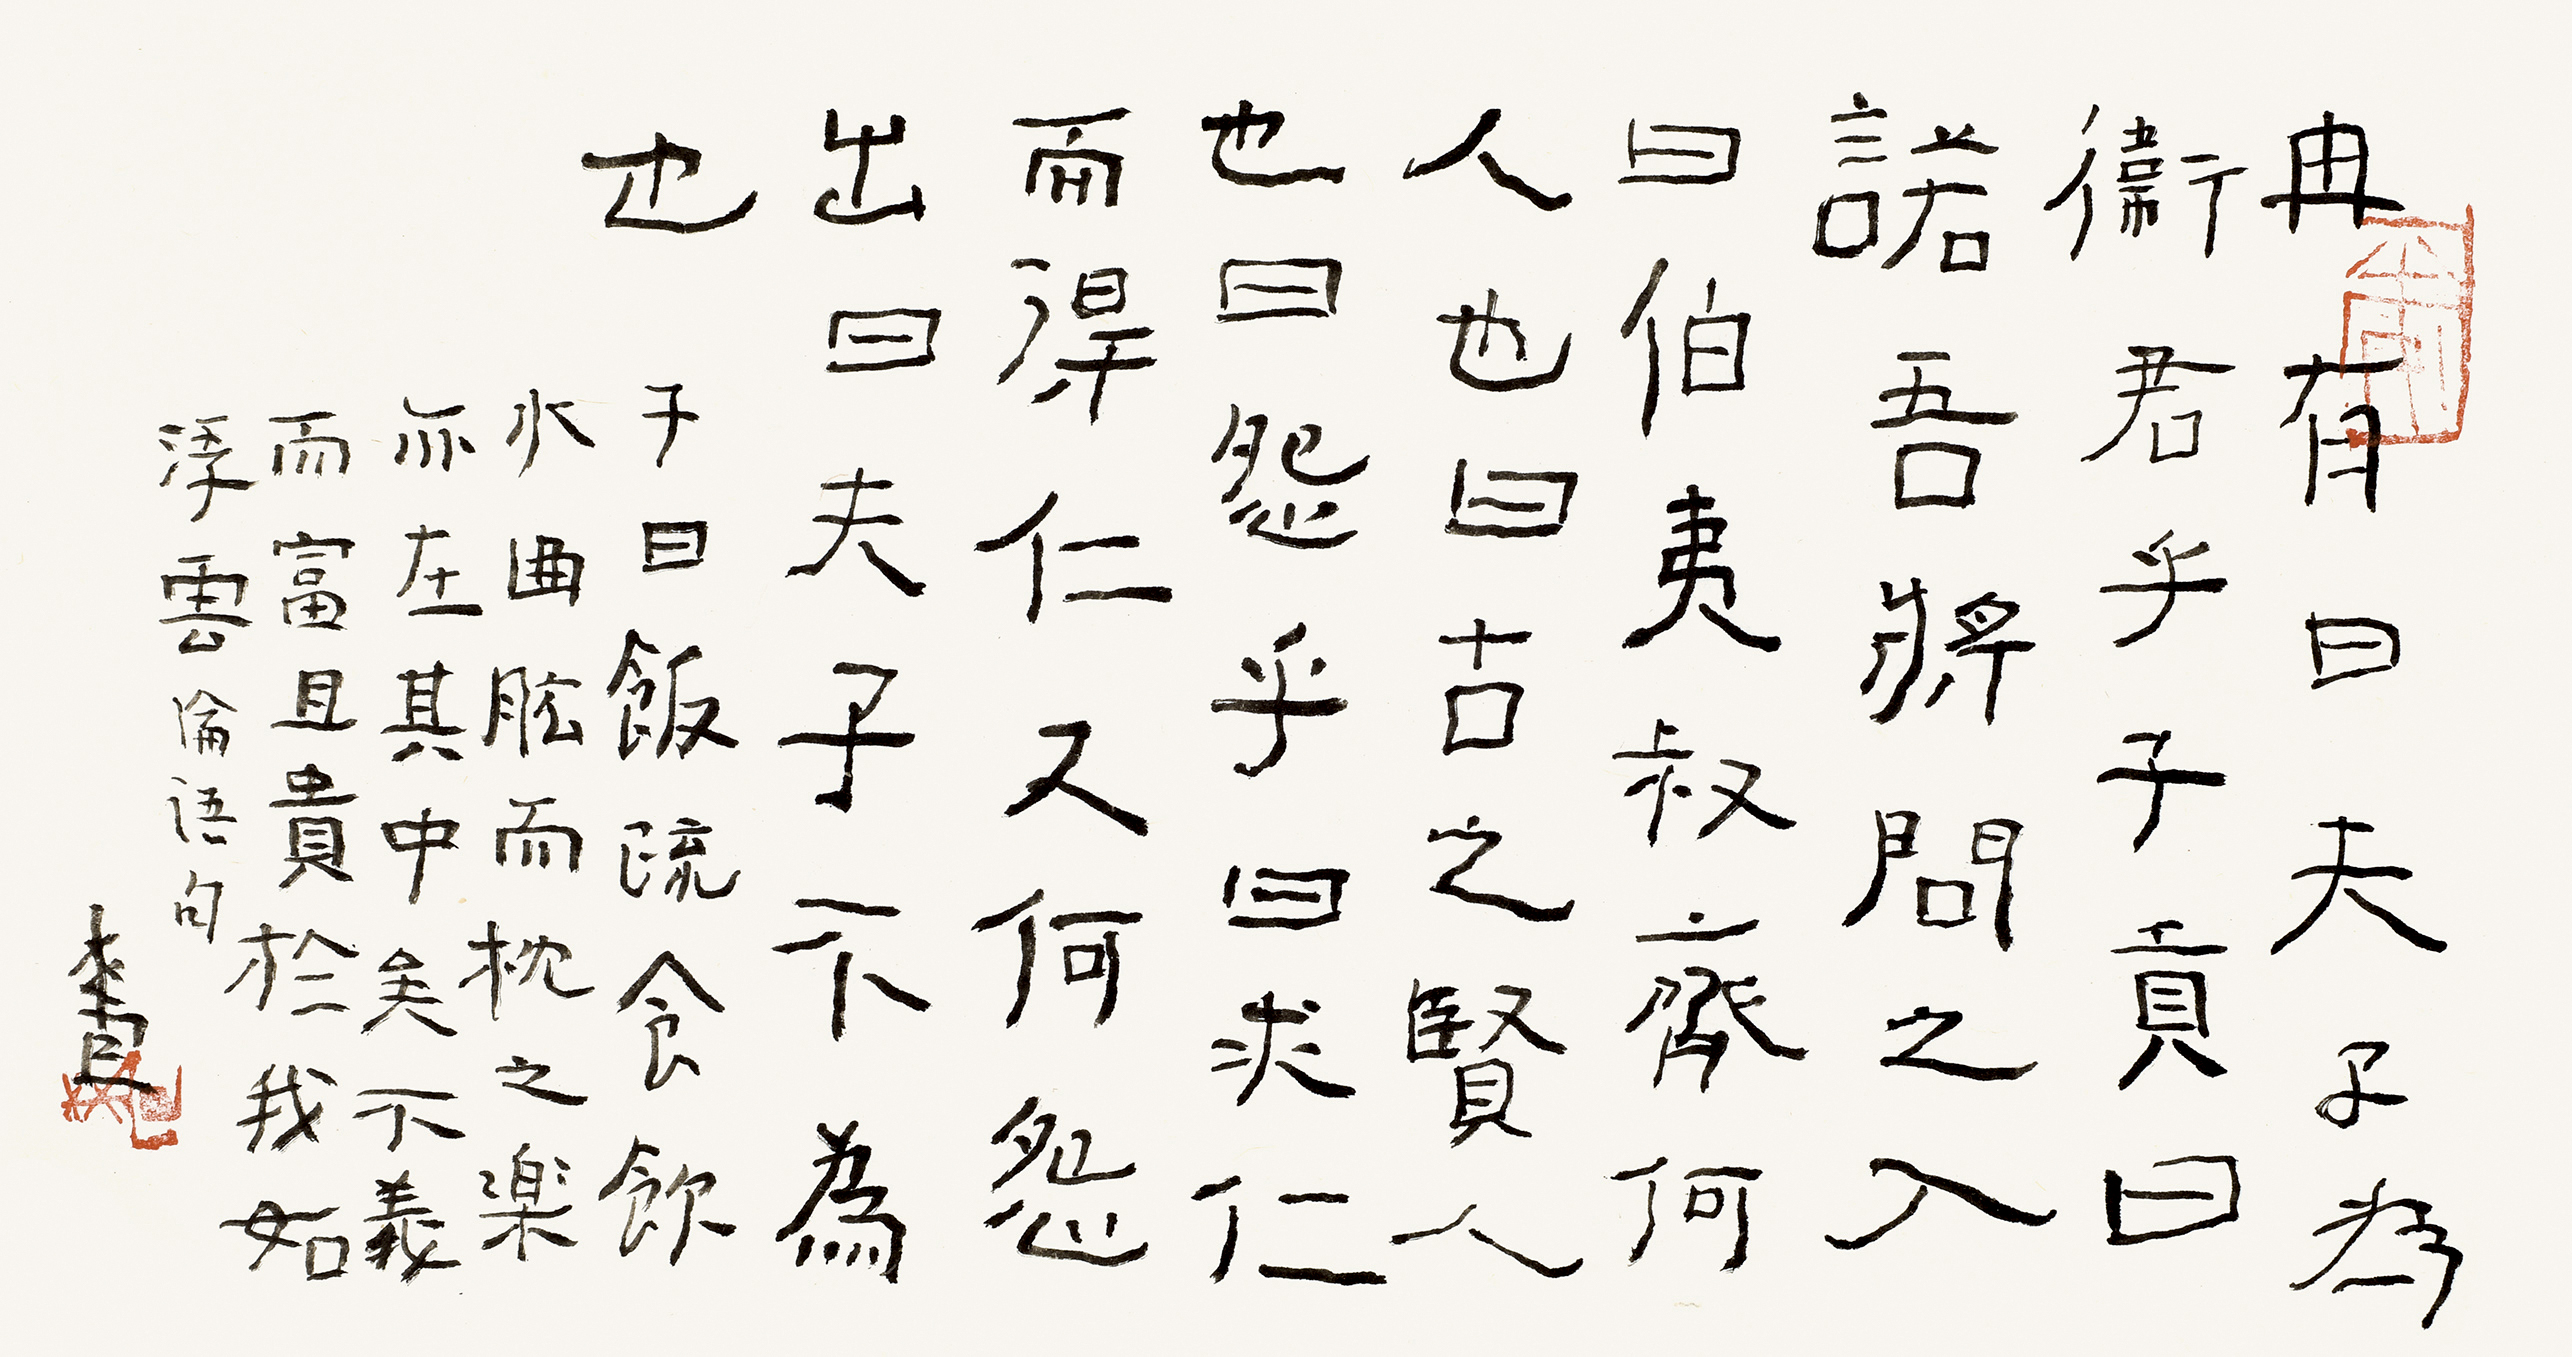 冉有曰夫子為
衛君乎子貢曰
諾吾將問之入
曰伯夷叔齊何
人也曰古之賢人
也曰怨乎曰求仁
而得仁又何怨
出曰夫子不為
也
子曰飯疏食飲
水曲肱而枕之楽
亦在其中矣不義
而富且貴於我如
浮雲 論語句